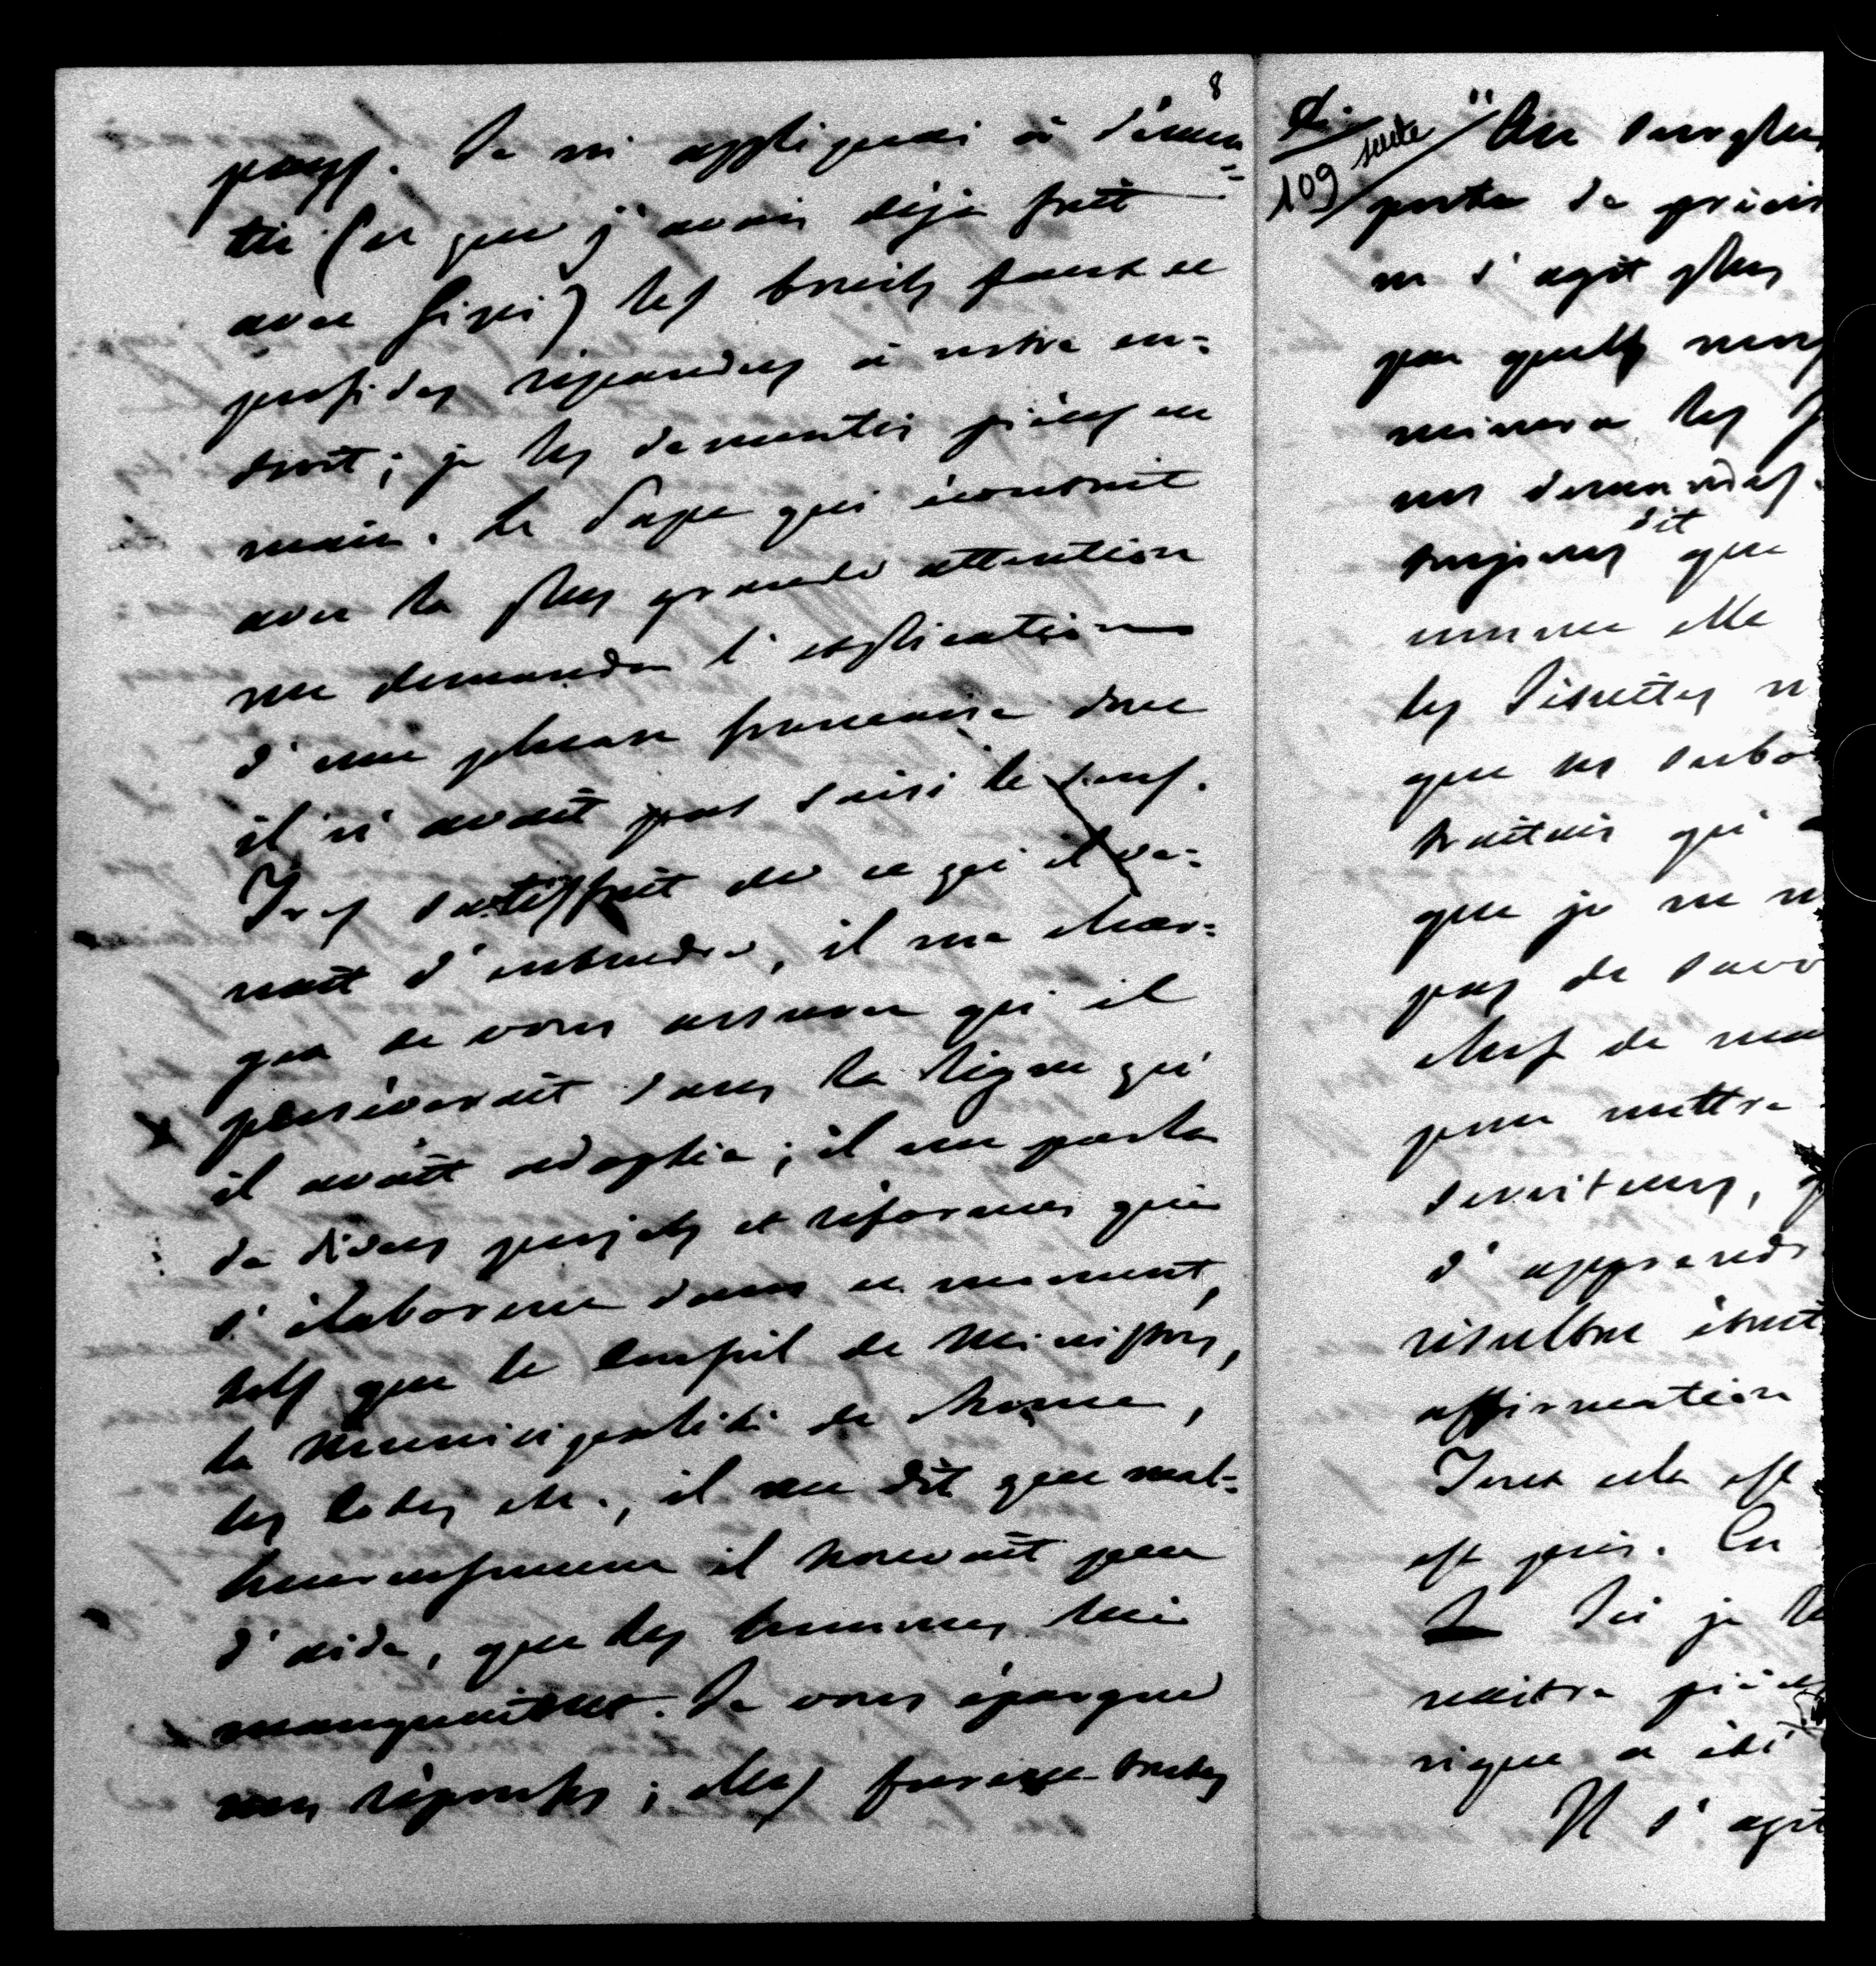 8
pays. Je m'appliquai à démen=
tir (ce que j'avais déjà fait
avec Gizzi) les bruits faux et
perfides répandus à notre en=
droit; je les démentis pièces en
main. Le Pape qui écoutait
avec la plus grande attention
me demanda l'explication
d'une phrase française dont
il n'avait pas saisi le sens.
Très satisfait de ce qu'il ve=
nait d'entendre, il me char=
gea de vous assurer qu'il
persévérait dans la ligne qu'
il avait adoptée; il me parla
de divers projets et réformes qui
s'élaborent dans ce moment,
tels que le Conseil de Ministres,
la Municipalité de Rome,
les Codes etc., il me dit que mal=
heureusement il trouvait peu
d'aide, que les hommes lui
manquaient. Je vous épargne
mes réponses; elles furent toutes
109 suite
porta de
ne s'agit plus
par quels
minera les
nos demandes.
toujours dit que
comme elle
les Jésuites n
que
traitais qu'
que je ne
pas de
chef de
pour mettre
serviteurs,
d'apprendr
résultat était
affirmation
Tout cela est
est pris. En
Ici je
naître
rique a été
Il s'agit